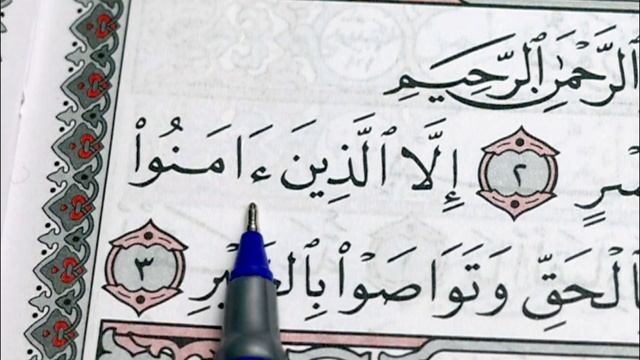 ٱلرَّحْمَٰنِ ٱلرَّحِيمِ
سْرٍ ٢ إِلَّا ٱلَّذِينَ ءَامَنُوا۟
ٱلْحَقِّ وَتَوَاصَوْا۟ بِٱلصَّبْرِ ٣